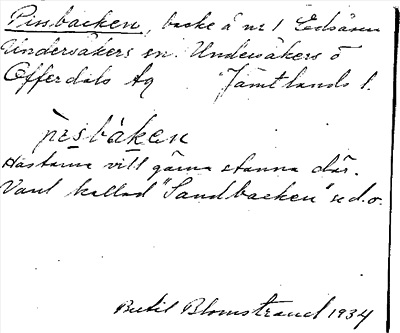 Pissbacken, backe å nr 1 Edsåsen
Undersåkers sn. Undersåkers o
Offerdals tg Jämtlands l.
pɪsbàken
Hästarna vill gärna stanna där.
Vant kallad "Sandbacken" s.d.o.
Bertil Blomstrand 1934